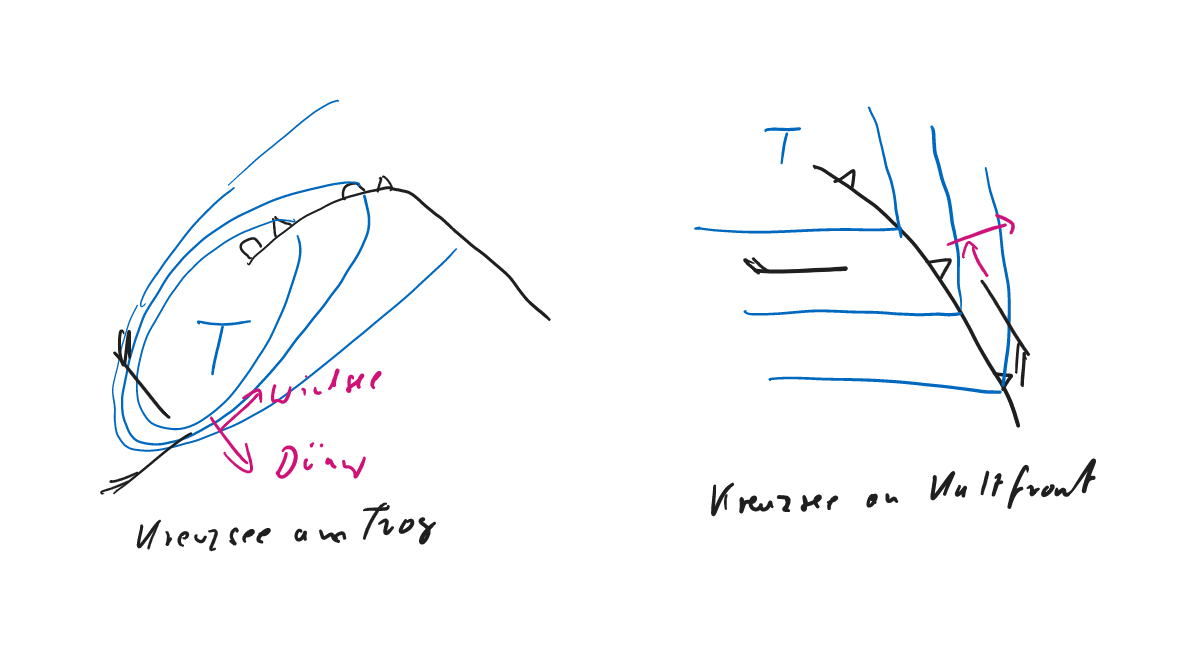 T
Windsee
Dünung
Kreuzsee am Trog
T
Kreuzsee an Kaltfront